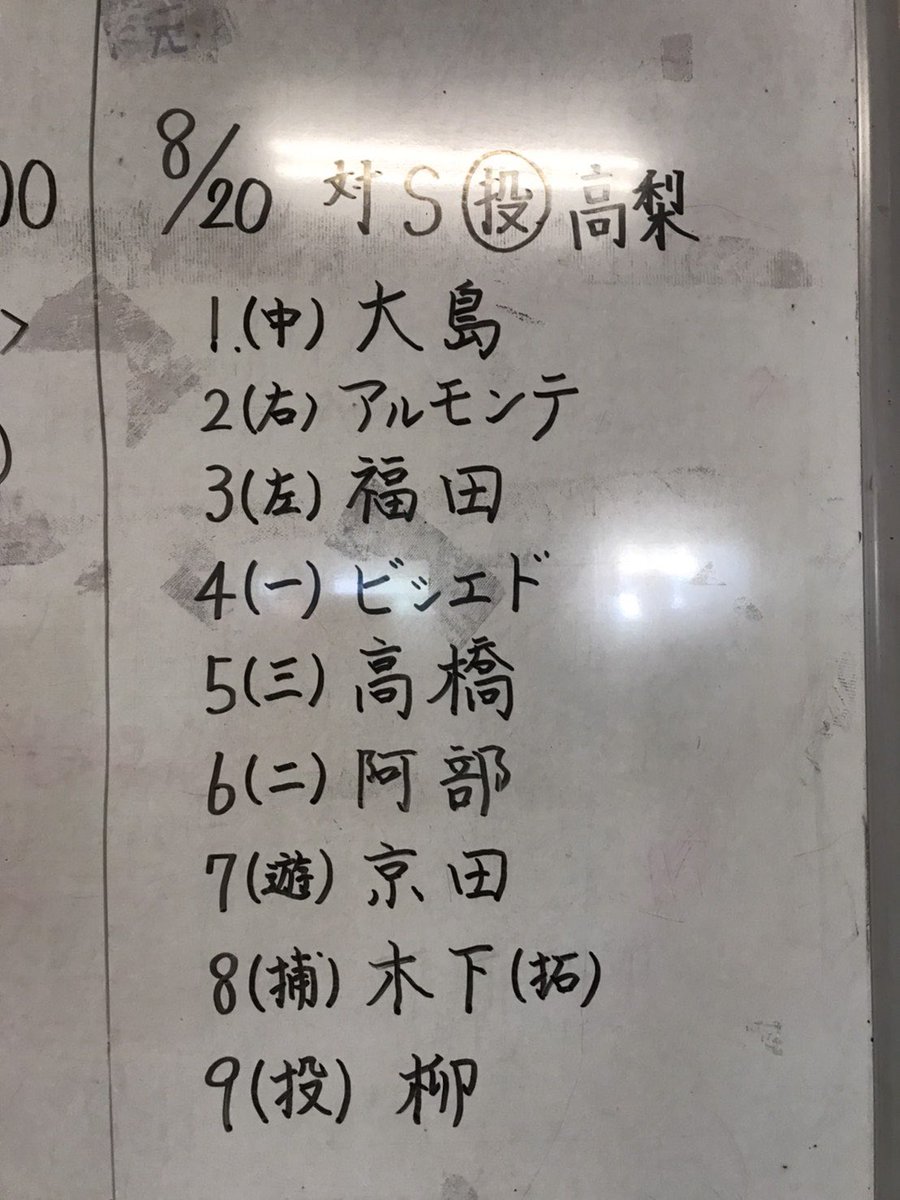 8/20 対S 投 高梨
1.(中) 大島
2(右) アルモンテ
3(左) 福田
4(一) ビシエド
5(三) 高橋
6(二) 阿部
7(遊) 京田
8(捕) 木下(拓)
9(投) 柳